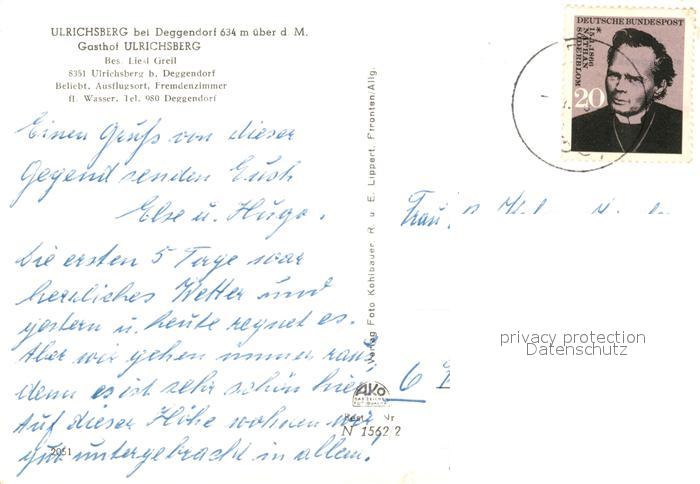 ULRICHSBERG bei Deggendorf 634 m über d. M.
Gasthof ULRICHSBERG
Bes. Liesl Greil
8351 Ulrichsberg b. Deggendorf
Beliebt. Ausflugsort, Fremdenzimmer
fl. Wasser, Tel. 980 Deggendorf
Einen Gruß von dieser
Gegend senden Euch
Else u. Hugo.
Die ersten 5 Tage war
herrliches Wetter und
gestern u. heute regnet es.
Aber wir gehen immer raus,
denn es ist sehr schön hier.
Auf dieser Höhe wohnen wir
gut untergebracht in allem.
2051
Verlag Foto Kohlbauer, R. u. E. Lippert, Pfronten/Allg.
AKO
Best. Nr
N 1562 2
DEUTSCHE BUNDESPOST
* 15.1.1866
NATHAN
SÖDERBLOM
20
Frau
6
privacy protection
Datenschutz